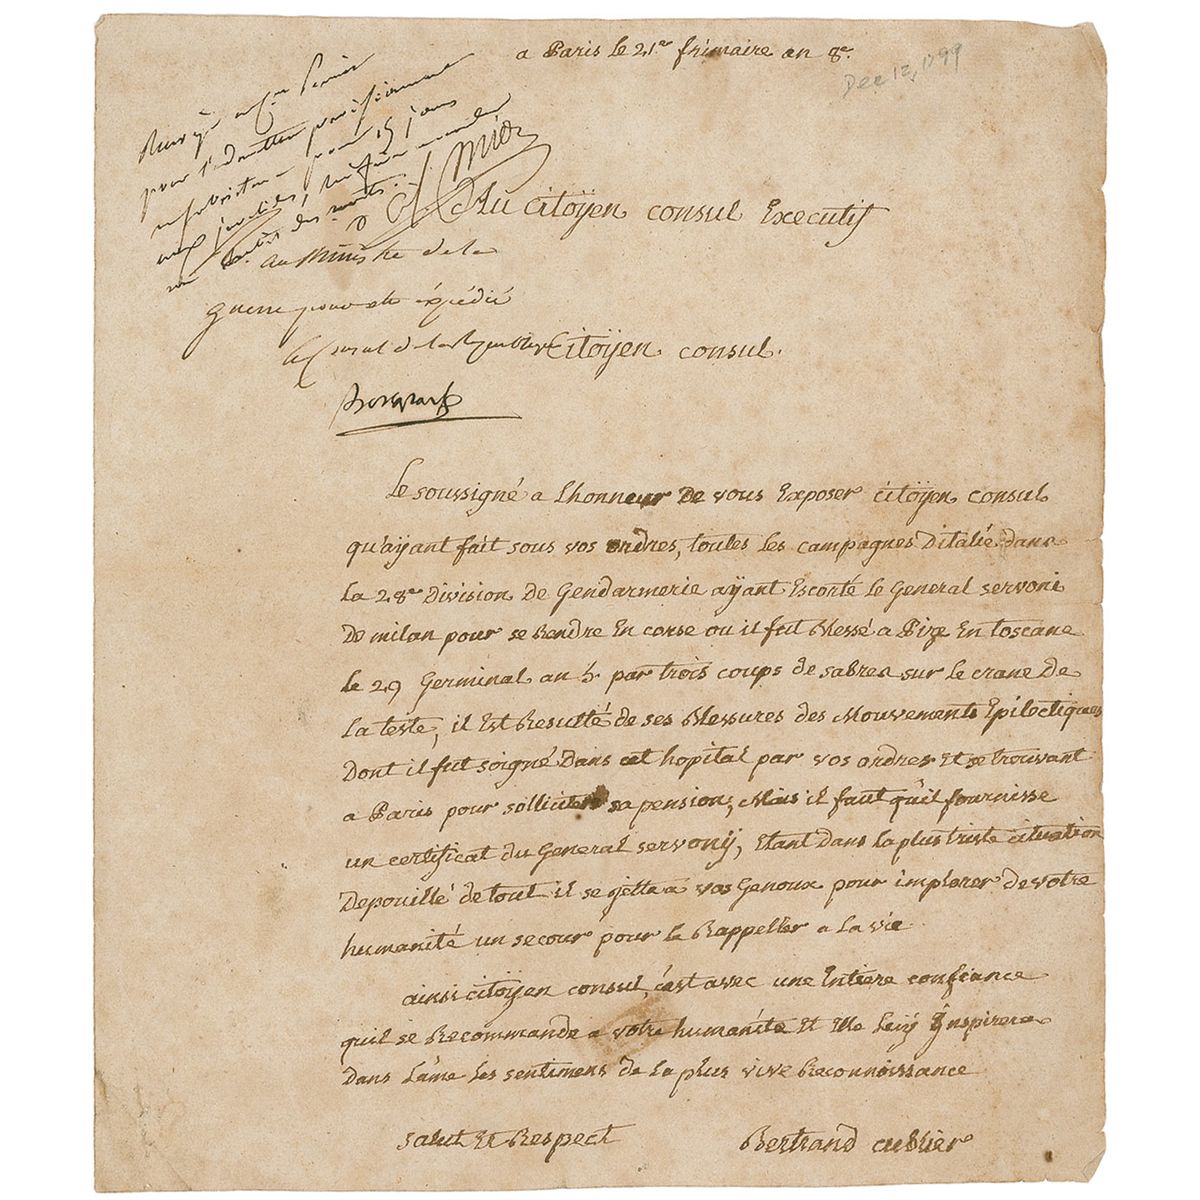 a Paris le 21er frimaire an 8e.
Dec 12, 1799
pour l'admettre provisoirement
pour 15 jours
Au citoÿen consul Executif
au Ministre de la
Guerre pour expédié
le Consul de la République
citoÿen consul.
Bonaparte
Le soussigné a Lhonneur de vous Exposer citoÿen consul
qu'aÿant fait sous vos ordres, toutes les campagnes D'italie dans
La 28e Division de Gendarmerie aÿant Escorté Le General servoni
De milan pour se Rendre En corse ou il fut Blessé a Pize En toscane
le 29 Germinal an 5. par trois coups de sabres sur le crane de
La teste, il Est Resulté de ses Blessures des Mouvements Epilectiques
Dont il fut soigné Dans cet hopital par vos ordres Et se trouvant
a Paris pour solliciter sa pension, Mais il faut qu'il fournisse
un certificat du General servonÿ, Etant dans la plus triste cituation
Depouillé de tout il se gette a vos Genoux pour implorer de votre
humanité un secour pour le Rappeller a La vie
ainsi citoÿen consul, c'est avec une Entiere confiance
quil se Recommande a votre humanité Et Elle luÿ Ynspirera
Dans L'ame les sentimens de La plus vive Reconnoissance
salut Et Respect
Bertrand cublier